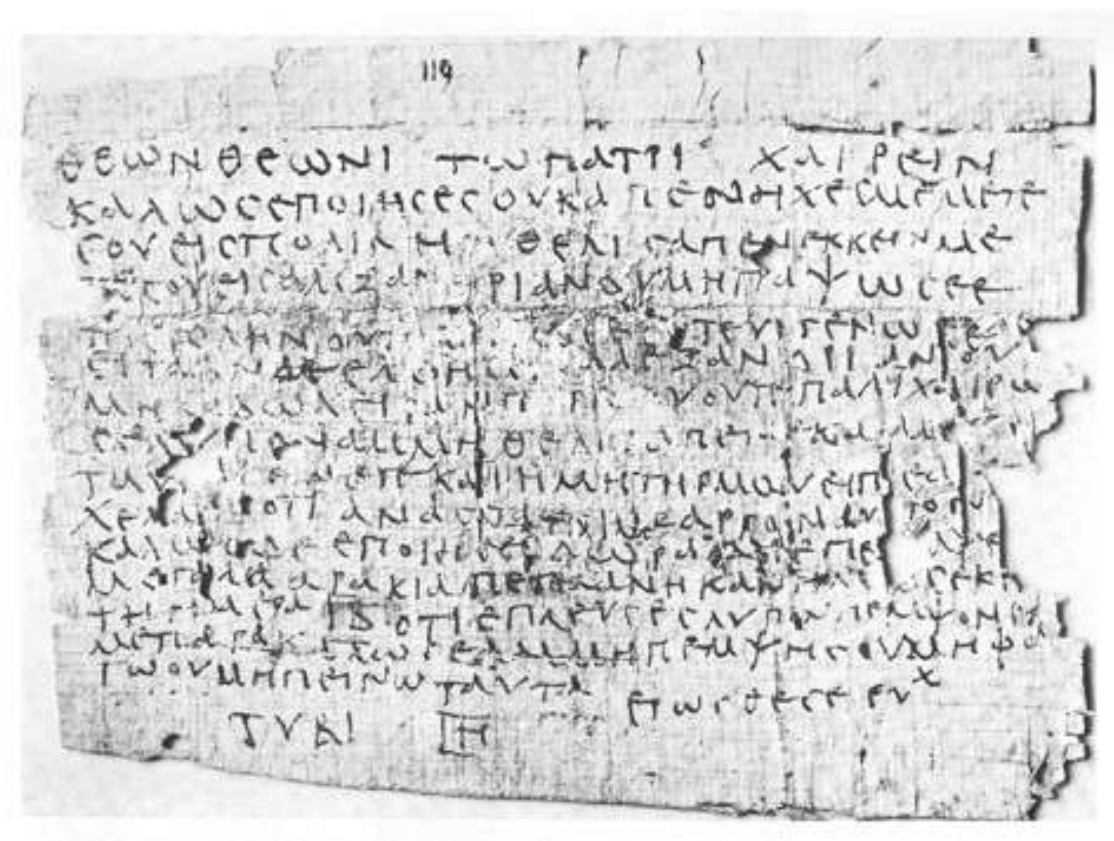 119
ΘΕΩΝ ΘΕΩΝΙ ΤΩ ΠΑΤΡΙ ΧΑΙΡΕΙΝ
ΚΑΛΩΣ ΕΠΟΙΗΣΕΣ ΟΥΚ ΑΠΕΝΗΧΕΣ ΜΕ ΜΕΤΕ
ΣΟΥ ΕΙΣ ΠΟΛΙΝ Η ΟΥ ΘΕΛΙΣ ΑΠΕΝΕΚΚΕΙΝ ΜΕ
Τ ΕΣΟΥ ΕΙΣ ΑΛΕΞΑΝΔΡΙΑΝ ΟΥ ΜΗ ΓΡΑΨΩ ΣΕ Ε
ΠΙΣΤΟΛΗΝ ΟΥΤΕ ΣΕ ΟΥΤΕ ΥΙΓΕΝΩ ΣΕ
ΕΙΤΑ ΑΝ ΔΕ ΕΛΘΗΣ ΕΙΣ ΑΛΕΞΑΝΔΡΙΑΝ ΟΥ
ΜΗ ΛΑΒΩ ΧΕΙΡΑΝ ΟΥΤΕ ΠΑΛΙ ΧΑΙΡΩ
ΣΕ ΛΥΠΟΝ ΑΜ ΜΗ ΘΕΛΗΣ ΑΠΕΝΕΚΑΙ ΜΕ
ΚΑΙ Η ΜΗΤΗΡ ΜΟΥ ΕΙΠΕ ΑΡ
ΧΕΛΑΩ ΟΤΙ ΑΝΑΣΤΑΤΟΙ ΜΕ ΑΡΡΟΝ ΑΥΤΟΝ
ΚΑΛΩΣ ΔΕ ΕΠΟΙΗΣΕΣ ΔΩΡΑ ΜΟΙ ΕΠΕΜΨΕΣ
ΜΕΓΑΛΑ ΑΡΑΚΙΑ ΠΕΠΛΑΝΗΚΑΝ ΗΜΩΣ ΕΚΕ
ΤΗ ΗΜΕΡΑ ΙΒ ΟΤΙ ΕΠΛΕΥΣΕΣ ΛΥΠΟΝ ΠΕΜΨΟΝ ΕΙΣ
ΜΕ ΠΑΡΑΚΑΛΩ ΣΕ ΑΜ ΜΗ ΠΕΜΨΗΣ ΟΥ ΜΗ ΦΑ
ΓΩ ΟΥ ΜΗ ΠΕΙΝΩ ΤΑΥΤΑ
ΕΡΩΣΘΕ ΣΕ ΕΥΧ
ΤΥΒΙ ΙΗ